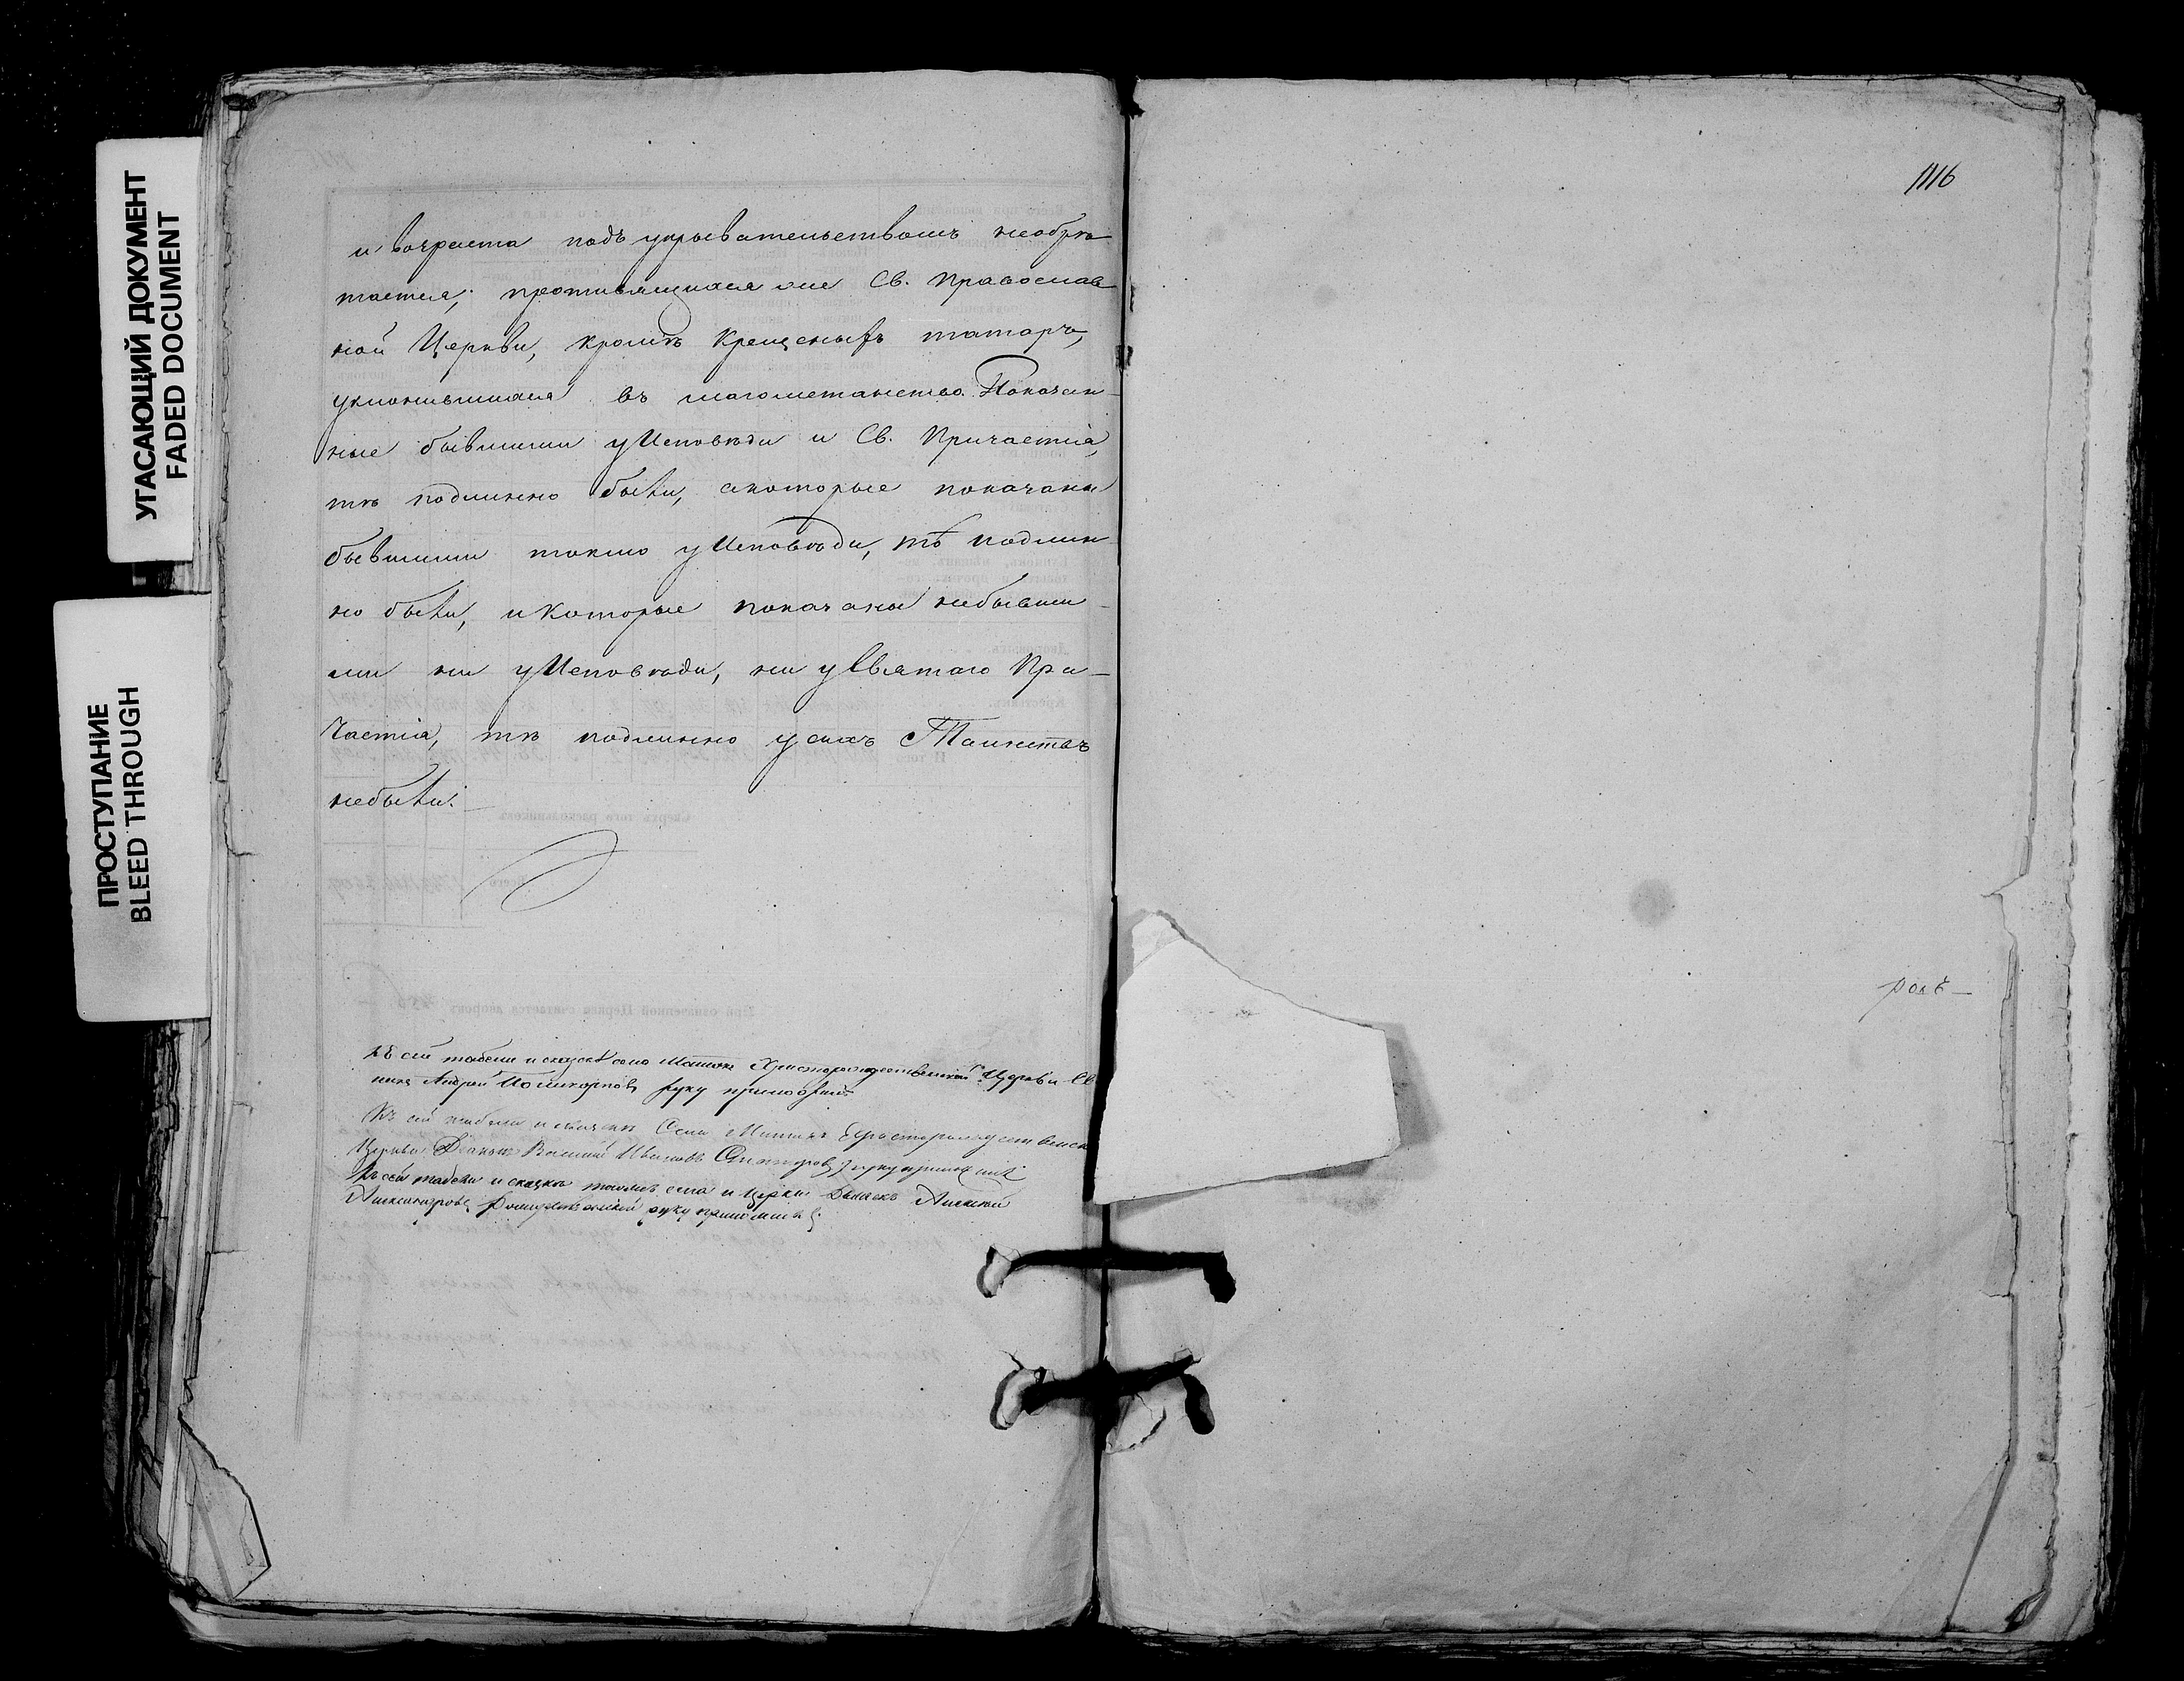 УГАСАЮЩИЙ ДОКУМЕНТ
FADED DOCUMENT
ПРОСТУПАНИЕ
BLEED THROUGH
и возраста подъ укрывательствомъ необрѣ-
тается; противящихся же Св. Православ-
ной Церкви, кромѣ крещеныхъ татаръ,
уклонившихся въ магометанство. Показан-
ные бывшими у Исповѣди и Св. Причастія,
тѣ подлинно были, а которые показаны
бывшими токмо у Исповѣди, тѣ подлин-
но были, и которые показаны небывши-
ми ни у Исповѣди, ни у Святаго При-
частія, тѣ подлинно у сихъ Таинствъ
небыли.
Къ сей табели и сказкѣ села Христорождественской Церкви Св
ника Андрей Поликарповъ руку приложилъ
Къ сей табели и сказкѣ Села Христорождественск
Церкви Дьяконъ Василій Ивановъ руку приложилъ
Къ сей табели и сказкѣ тогожъ села и Церкви Дьячекъ Алексѣй
Александровъ руку приложилъ
1116